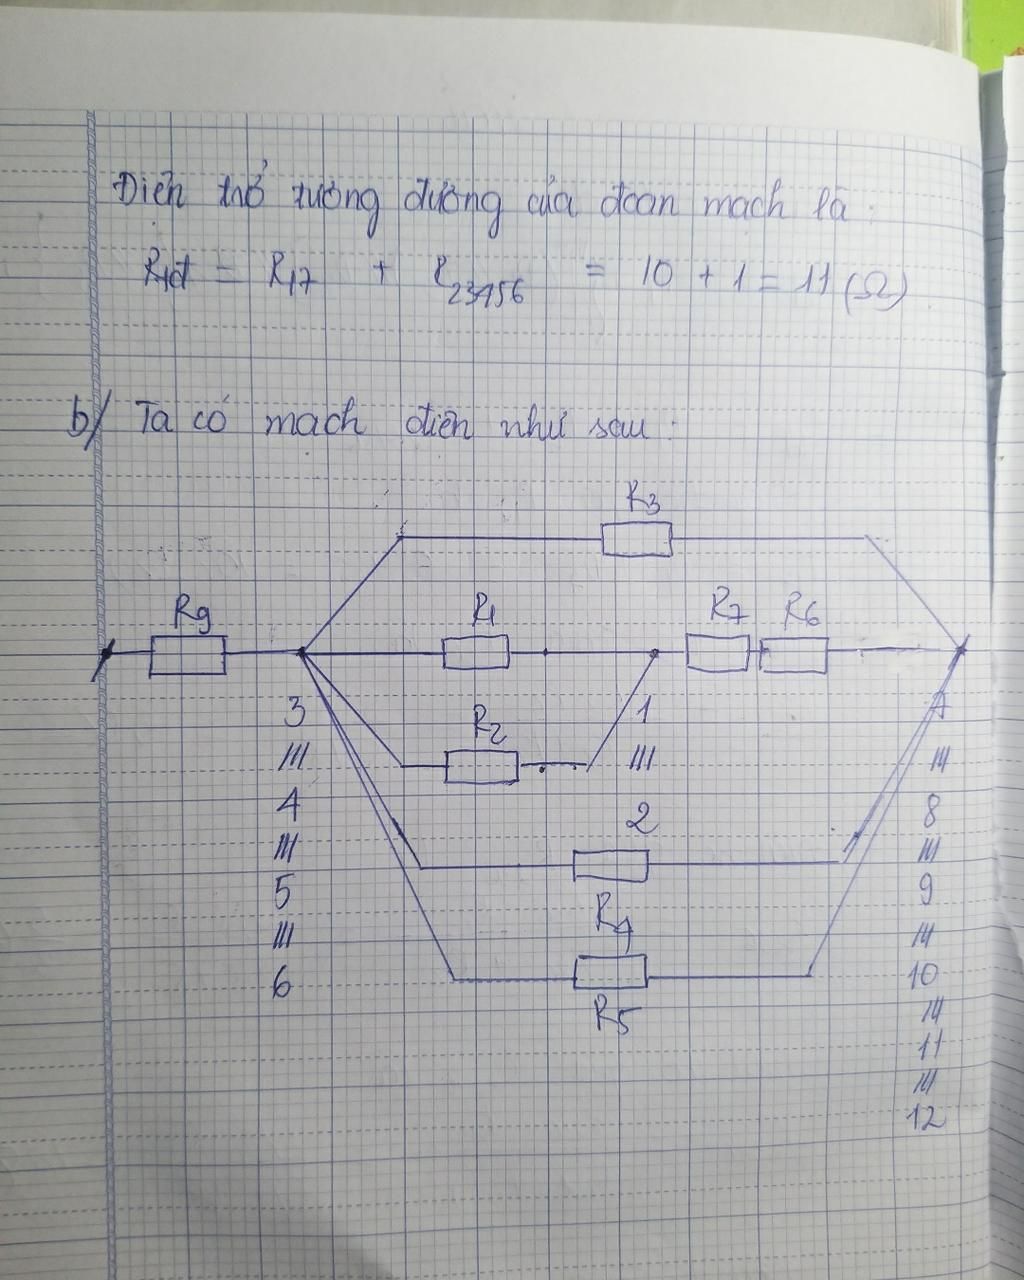 Điện trở tương đương của đoạn mạch là:
Rtđ = R17 + R23456 = 10 + 1 = 11 (Ω)
b/ Ta có mạch điện như sau:
R3
R9 R1 R7 R6
3 R2 1 7
/// /// ///
4 2 8
/// ///
5 R4 9
/// ///
6 R5 10
///
11
///
12